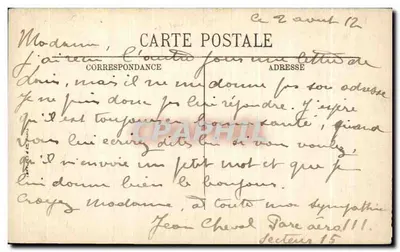 Ce 2 aout 12
Madame,
CARTE POSTALE
j'ai reçu l'autre jour une lettre de
CORRESPONDANCE
ADRESSE
mais il ne me donne pas son adresse
Je ne puis donc pas lui répondre. J'espère
qu'il est toujours en bonne santé, quand
vous lui écrirez dites lui si vous voulez,
qu'il m'envoie un petit mot et que je
lui donne bien le bonjour.
Croyez Madame, à toute ma sympathie
Jean Cheval Parc aéro 111
Secteur 15
CPA